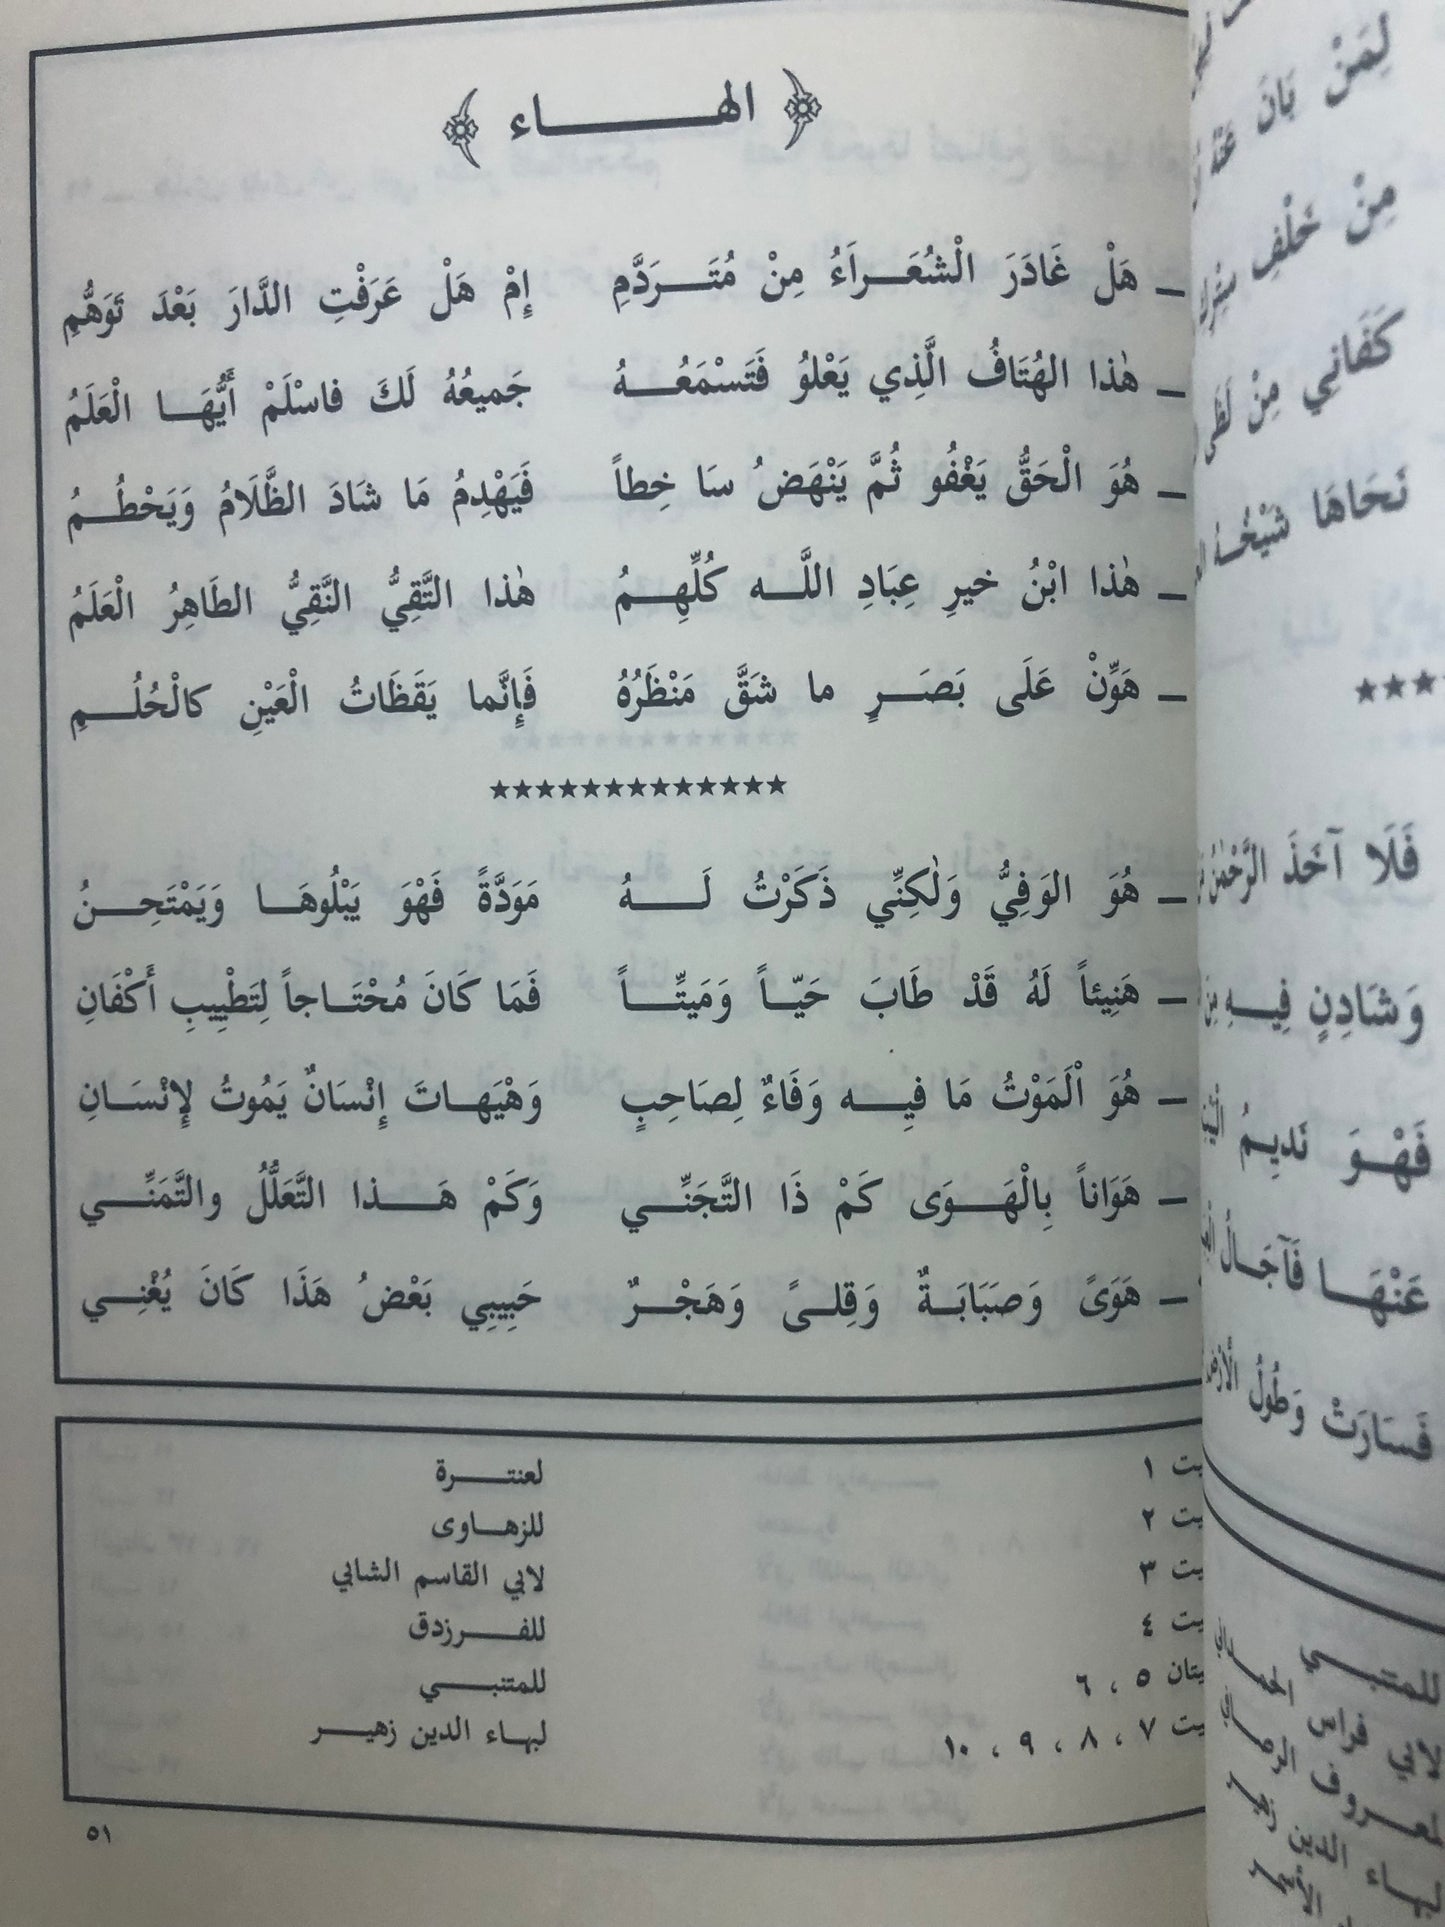 الهـــاء
ـ هَلْ غَادَرَ الْشُعَـراَءُ مِنْ مُتَـرَدَّمِ إِمْ هَلْ عَرَفْتِ الدَّارَ بَعْدَ تَوَهُّمِ
ـ هٰذا الهُتَافُ الَّذِي يَعْلوُ فَتَسْمَعُـهُ جَميعُهُ لَكَ فاسْلَمْ أَيُّهَـا الْعَلَمُ
ـ هُوَ الْحَقُّ يَغْفُو ثُمَّ يَنْهَضُ سَا خِطاً فَيَهْدِمُ مَا شَادَ الظَّلَامُ وَيَحْطُـمُ
ـ هٰذا ابْنُ خيرِ عِبَادِ اللَّـه كُلِّهِـمُ هٰذا التَّقِيُّ النَّقِيُّ الطَاهِرُ الْعَلَمُ
ـ هَوِّنْ عَلَى بَصَـرٍ ما شَقَّ مَنْظَرُهُ فَإِنَّما يَقَظَاتُ الْعَيْنِ كالْحُلُـمِ
★★★★★★★★★★★★★
ـ هُوَ الوَفِيُّ وَلٰكِنِّي ذَكَرْتُ لَـهُ مَوَدَّةً فَهْوَ يَبْلُوهَـا وَيَمْتَحِـنُ
ـ هَنِيئاً لَهُ قَدْ طَابَ حَيّـاً وَمَيتِّـاً فَمَا كَانَ مُحْتَـاجاً لِتَطْيِيبِ أَكْفَانِ
ـ هُوَ اْلَمَوْتُ مَا فِيـه وَفَاءٌ لِصَاحِبٍ وَهْيَهـاتَ إِنْسَانٌ يَمُوتُ لإِنْسَـانِ
ـ هَوَاناً بِالْهَـوَى كَمْ ذَا التَّجَنِّـي وَكَمْ هَـذا التَّعَلُّلُ والتَّمَنِّـي
ـ هَوَىً وَصَبَابَـةٌ وَقِلـىً وَهَجْـرٌ حَبِيبِي بَعْضُ هَذَا كَانَ يُغْنِـي
١ لعنتـرة
٢ للزهـاوى
٣ لابي القاسم الشابي
٤ للفـرزدق
٥ ، ٦ للمتنبـي
٧ ، ٨ ، ٩ ، ١٠ لبهـاء الدين زهيـر
٥١
لِمَنْ بَانَ
مِنْ خَلْفِ
كَفَانِي مِنْ لَظَى
نَحَاهَا
★★★
فَلَا آخَذَ الرَّحْمٰنُ
وَشَادِنٍ فِيـهِ
فَهْـوَ نَديِمُ
عَنْهَـا فَآجَـالُ
فَسَارَتْ وَطُولُ
للمتنبـي
لابي فراس
لبهاء الدين زهير